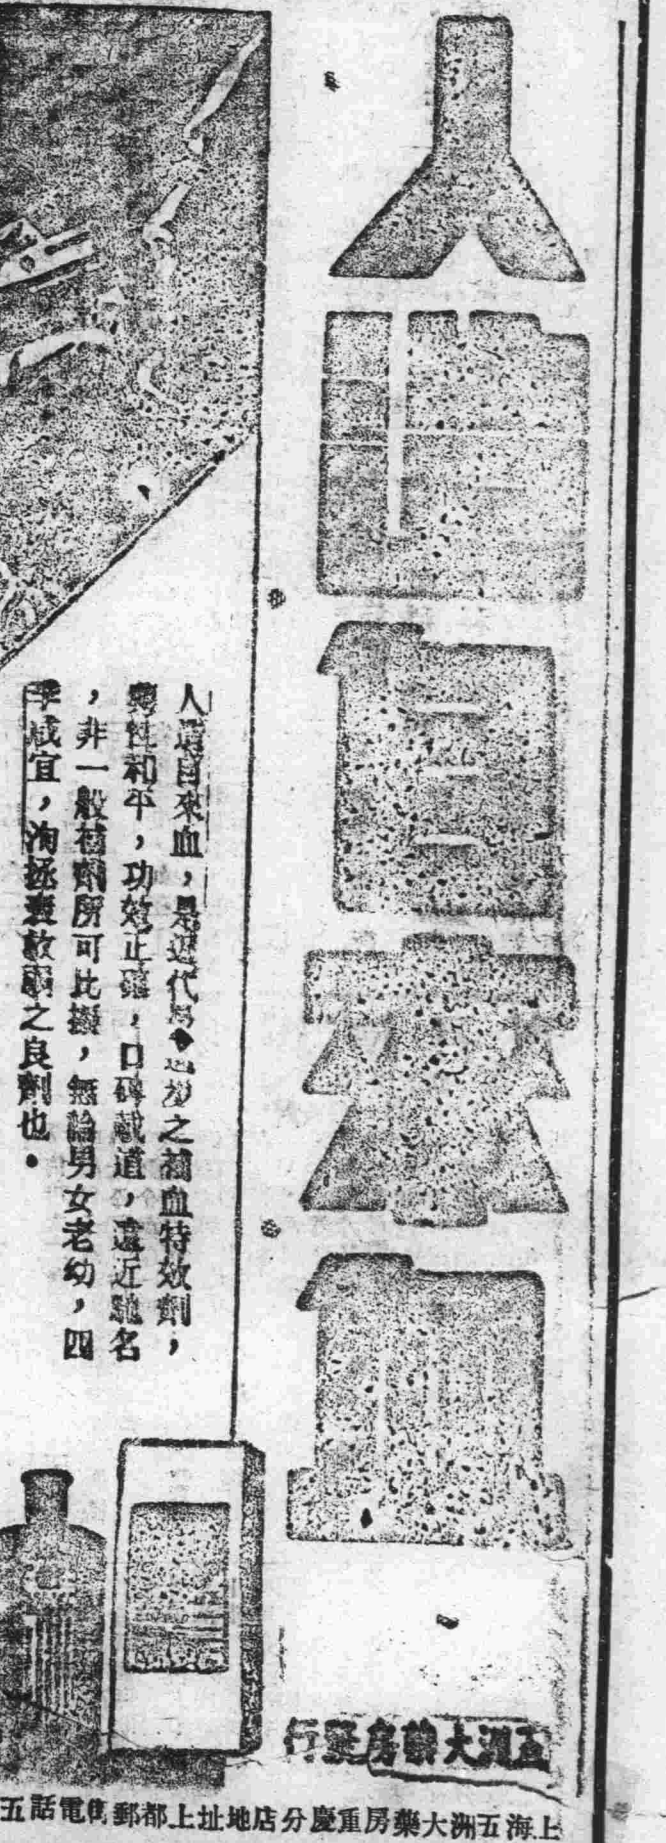 人造自來血
人造自來血，是近代進步之補血特效劑，
性和平，功效正確，口碑載道，遠近馳名
，非一般補劑所可比擬，無論男女老幼，四
季咸宜，洵拯衰救弱之良劑也。
五洲大藥房發行
上海五洲大藥房重慶分店地址上都郵街電話五